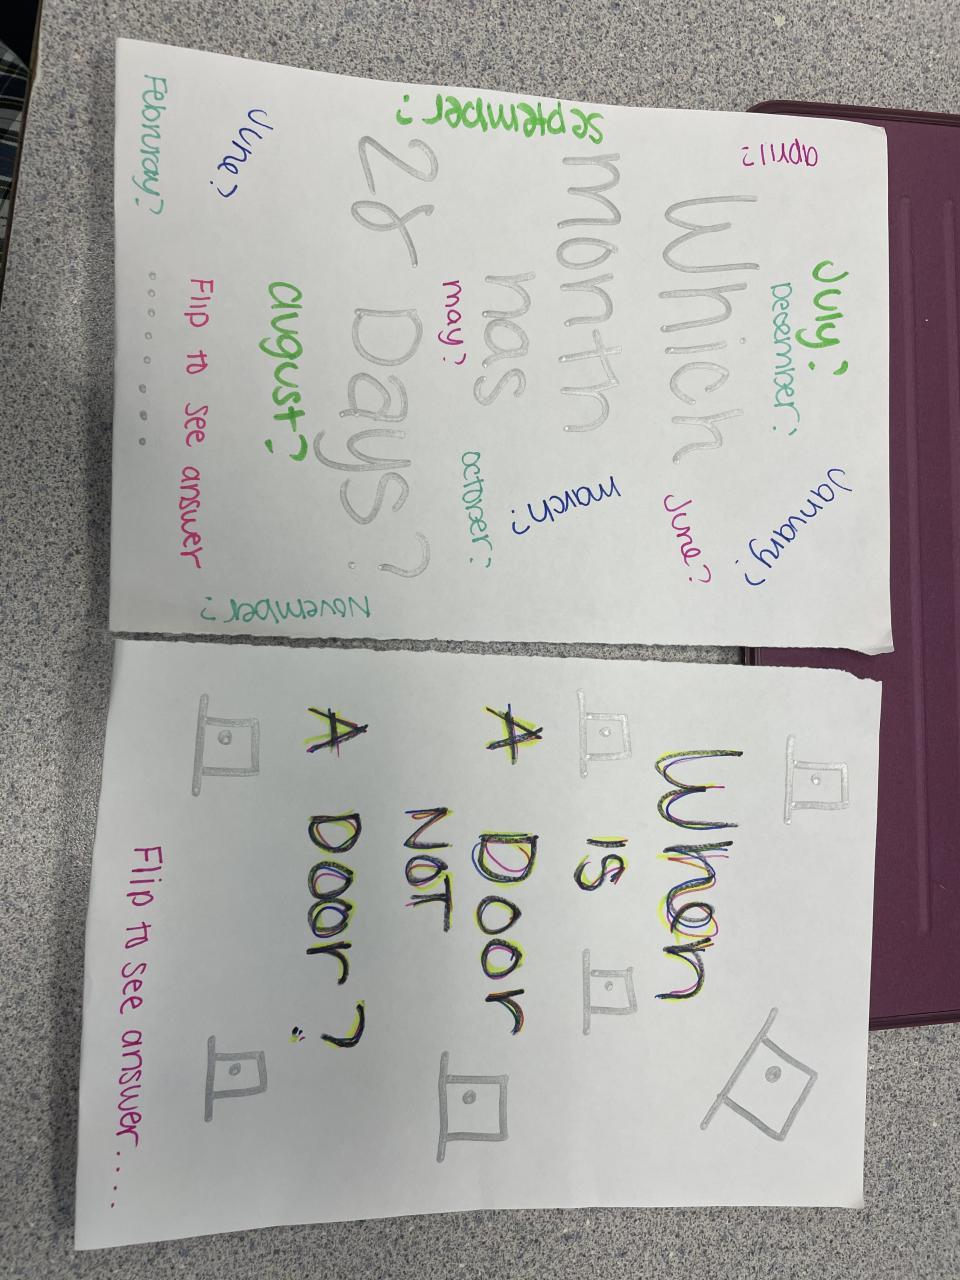 July?
January?
april?
December?
Which
June?
Month
September?
march?
has
october?
may?
28 Days?
November?
august?
June?
Flip to see answer
Februray?
........
When
IS
A Door
NOT
A Door?
Flip to see answer....